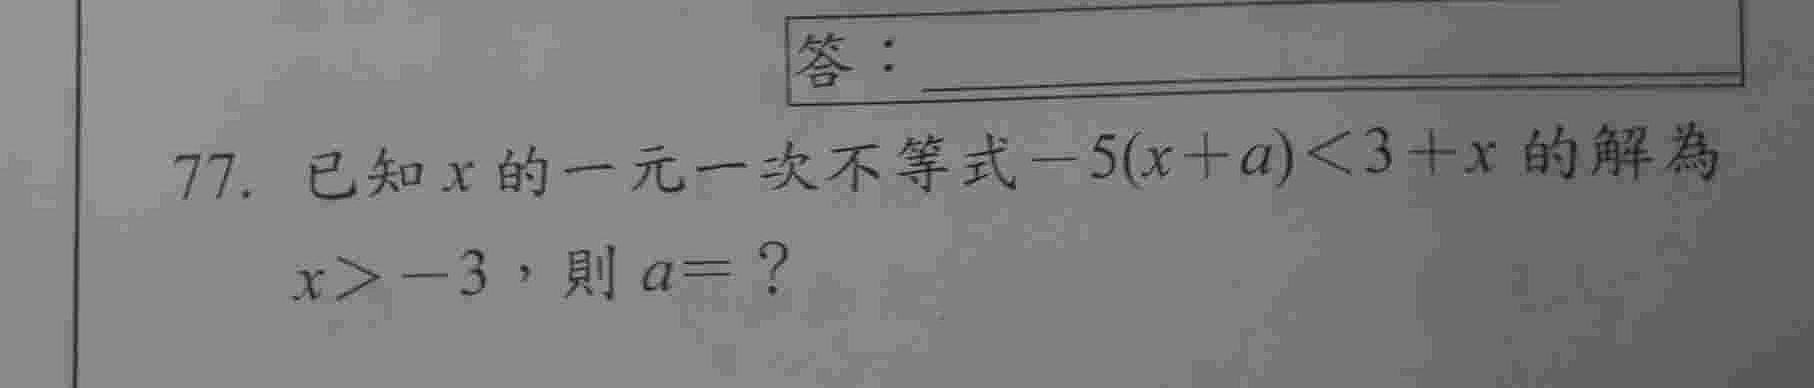 答：
77. 已知 x 的一元一次不等式－5(x＋a)＜3＋x 的解為
x＞－3，則 a＝？